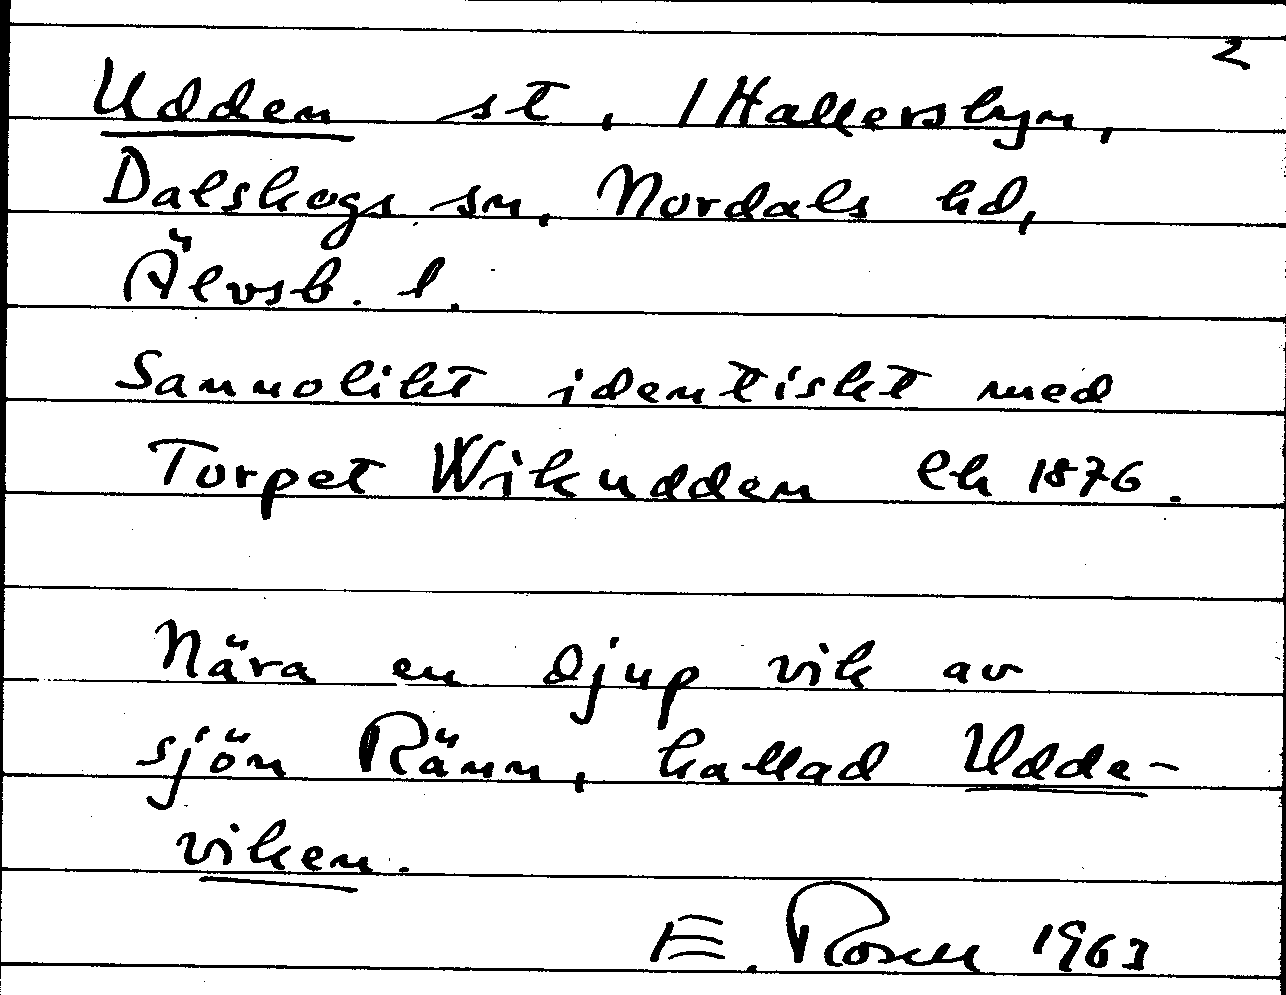 2
Udden st, 1 Hallersbyn,
Dalskogs sn, Nordals hd,
Älvsb. l.
Sannolikt identiskt med
Torpet Wikudden Ek 1876.
Nära en djup vik av
sjön Ränn, kallad Udde-
viken.
E. Rosell 1963